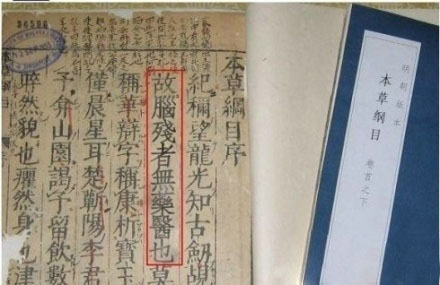 本草綱目序
紀稱望龍光知古劍覘
故腦殘者無藥醫也莫
稱華辯字稱康析寶玉
僅晨星耳楚蘄陽李君
予弇山園謁予留飲數
睟然貌也癯然身也津
明朝版本
本草纲目
卷首之下